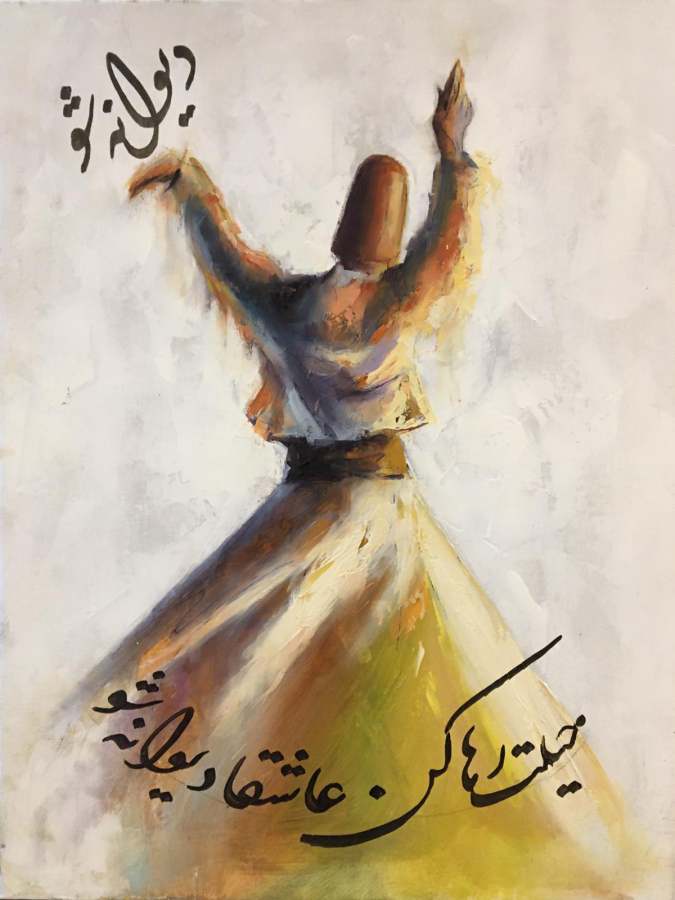 دیوانه شو
حیلت رها کن عاشقا دیوانه شو